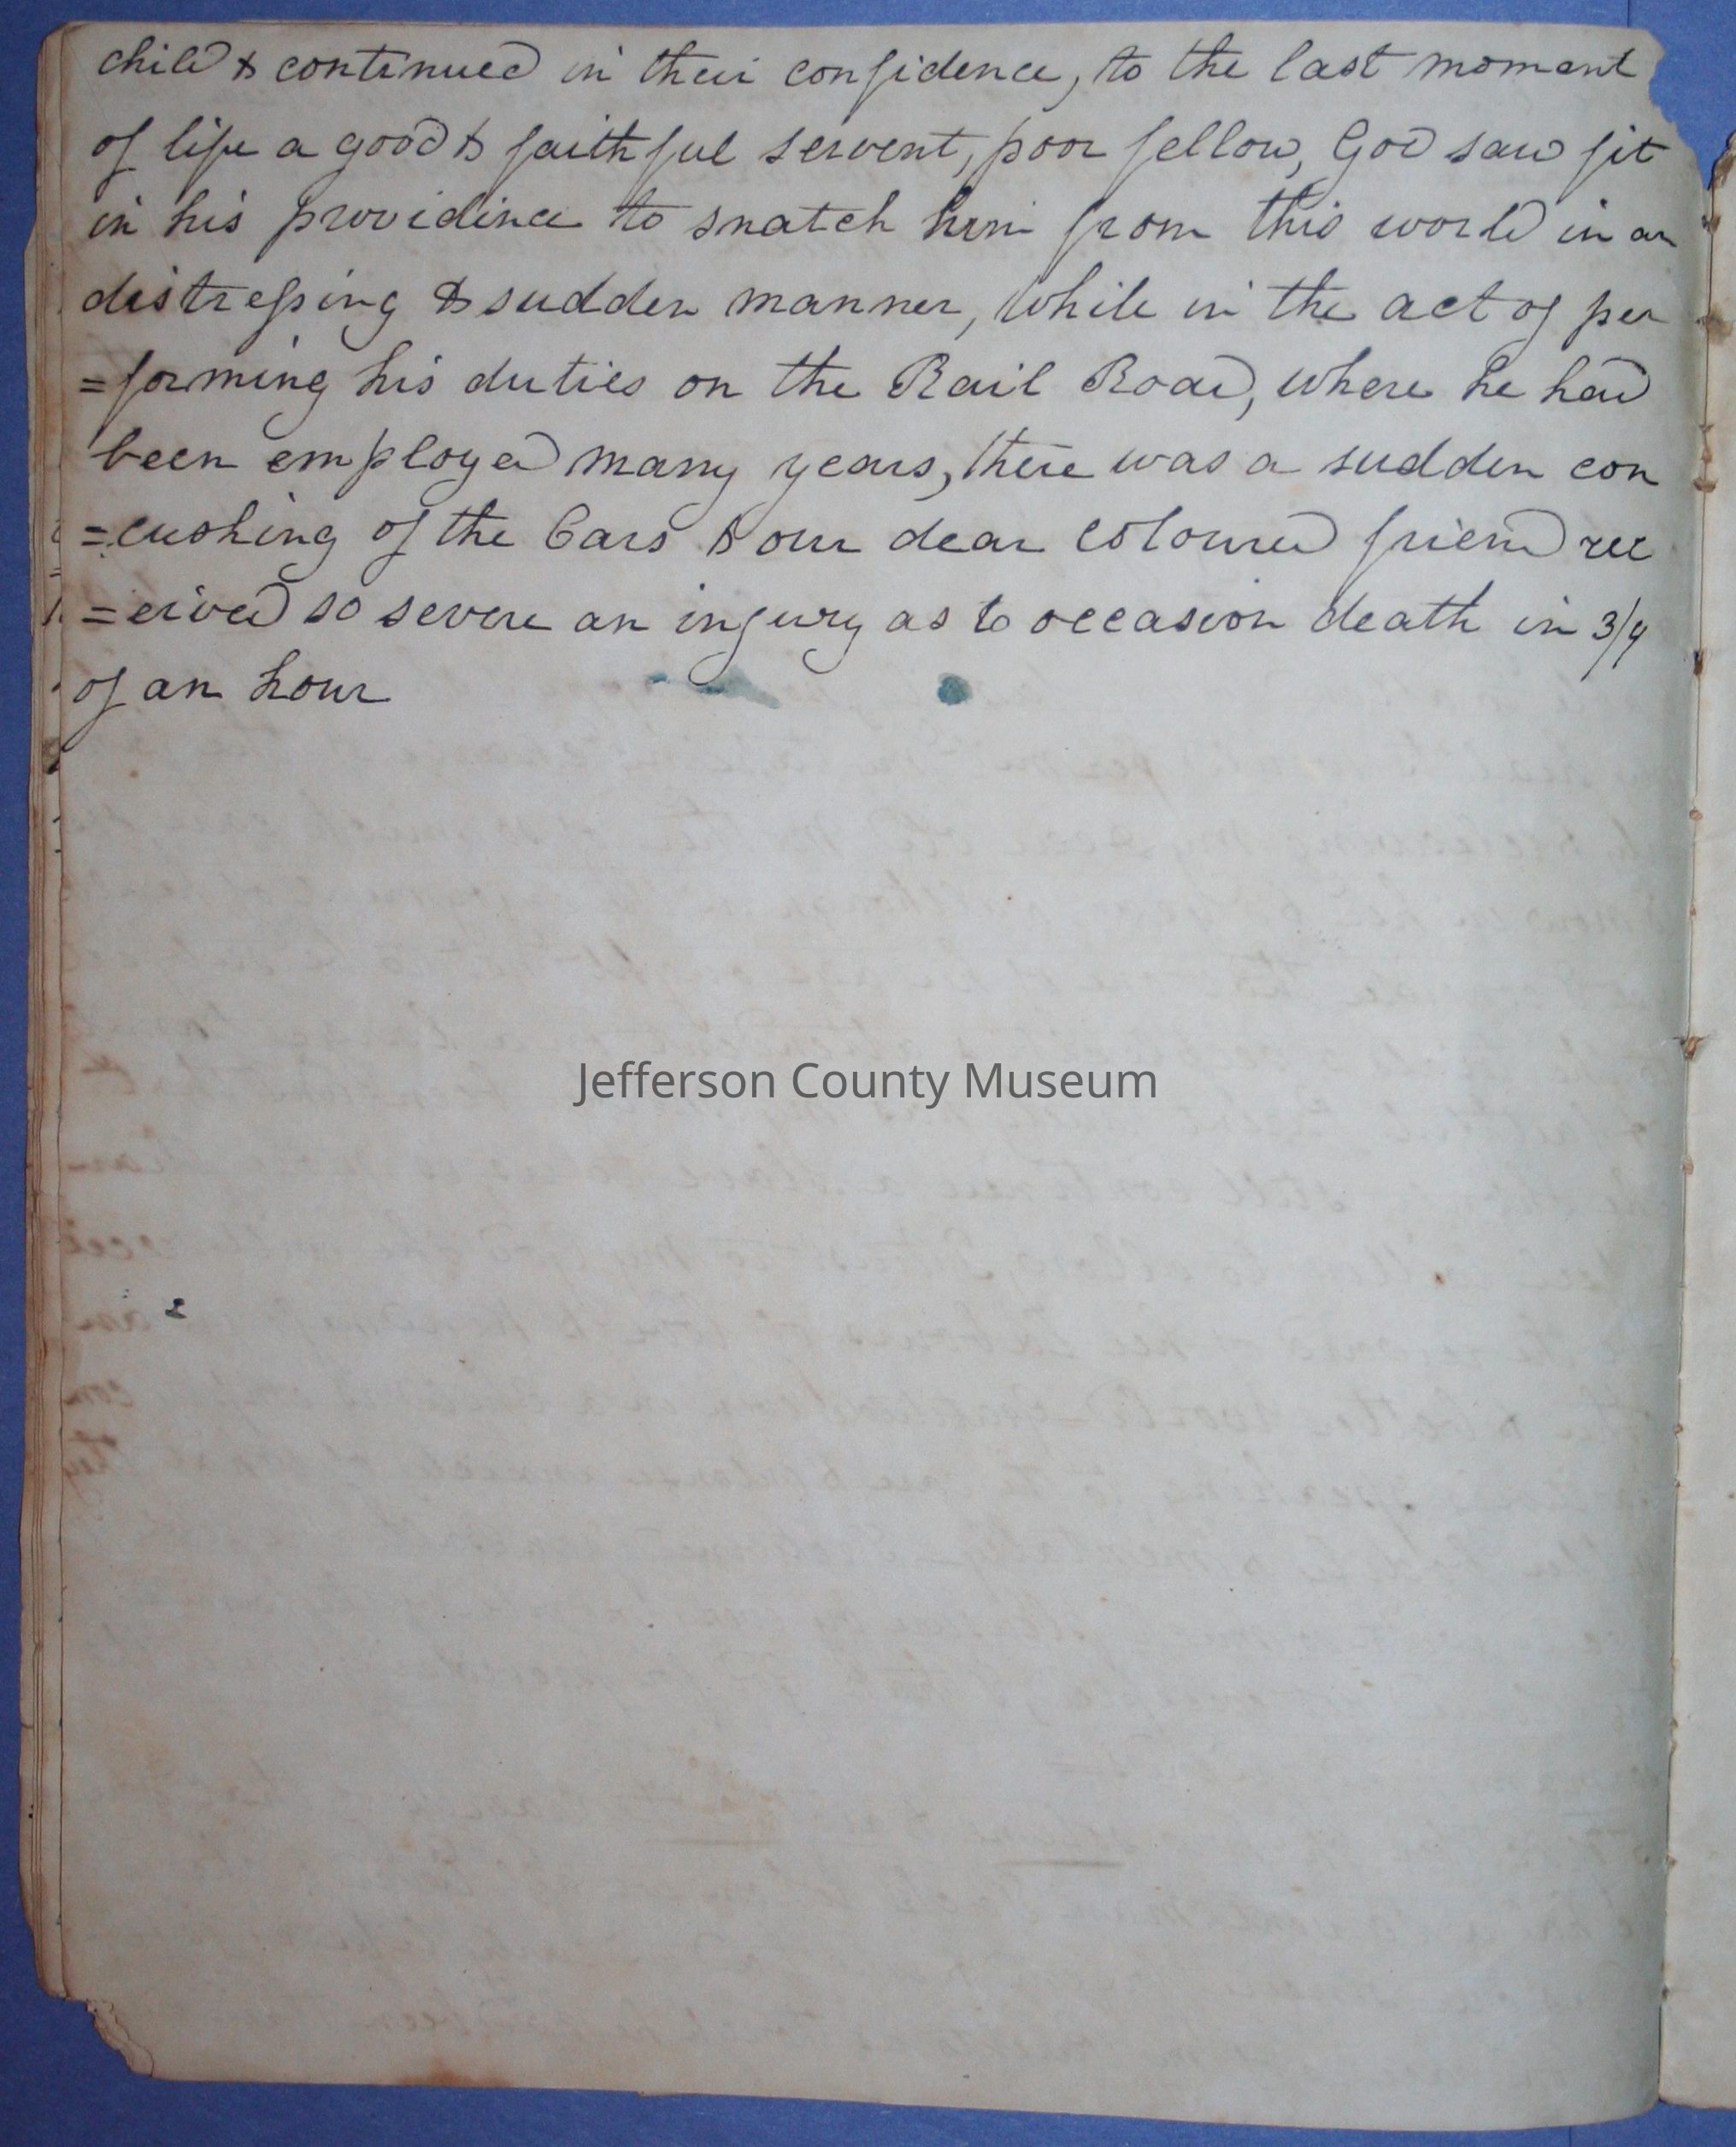 child & continued in their confidence, to the last moment
of life a good & faithful servent, poor fellow, God saw fit
in his providince to snatch him from this world in an
distressing & sudden manner, while in the act of per
=forming his duties on the Rail Road, where he had
been employed many years, there was a sudden con
=cushing of the Cars & our dear coloured friend rec
=eived so severe an injury as to occasion death in 3/4
of an hour
Jefferson County Museum